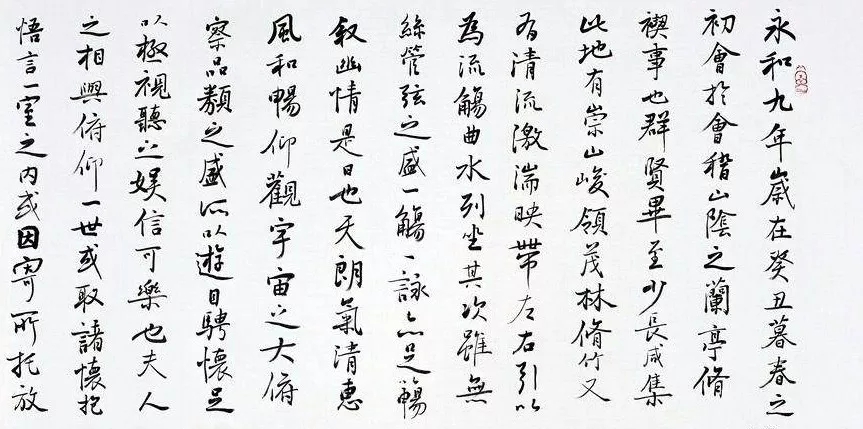 永和九年歲在癸丑暮春之
初會於會稽山陰之蘭亭脩
禊事也群賢畢至少長咸集
此地有崇山峻領茂林脩竹又
有清流激湍映帶左右引以
為流觴曲水列坐其次雖無
絲管弦之盛一觴一詠亦足暢
叙幽情是日也天朗氣清惠
風和暢仰觀宇宙之大俯
察品類之盛所以遊目騁懷足
以極視聽之娛信可樂也夫人
之相與俯仰一世或取諸懷抱
悟言一室之内或因寄所托放